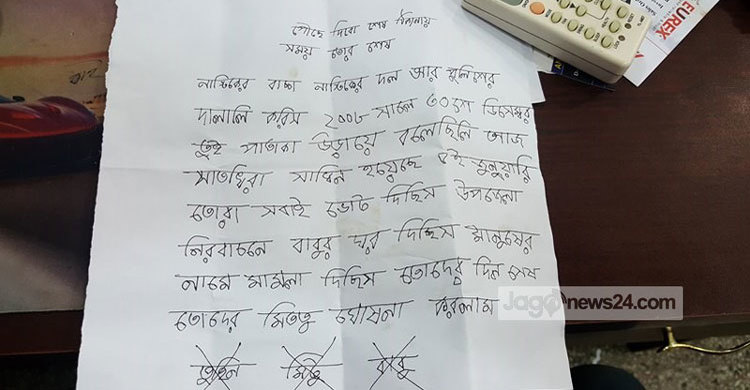 পৌছে দিবো শেষ ঠিকানায়
সময় তোর শেষ
নাস্তিকের বাচ্চা নাস্তিকের দল আর পুলিশের
দালালি করিস ২০০৮ সালে ৩০শে ডিসেম্বর
তুই পাতাকা উড়ায়ে বলেছিলি আজ
সাতখিরা সাধিন হয়েছে ৫ই জুনুয়ারি
তোরা সবাই ভোট দিছিস উপজেলা
নিরবাচনে বাবুর ঘর দিছিস মানুষের
নামে মামলা দিছিস তোদের দিন শেষ
তোদের মিততু ঘোষনা করলাম
তুহিন মিঠু বাবু
Jagonews24.com
EUREX